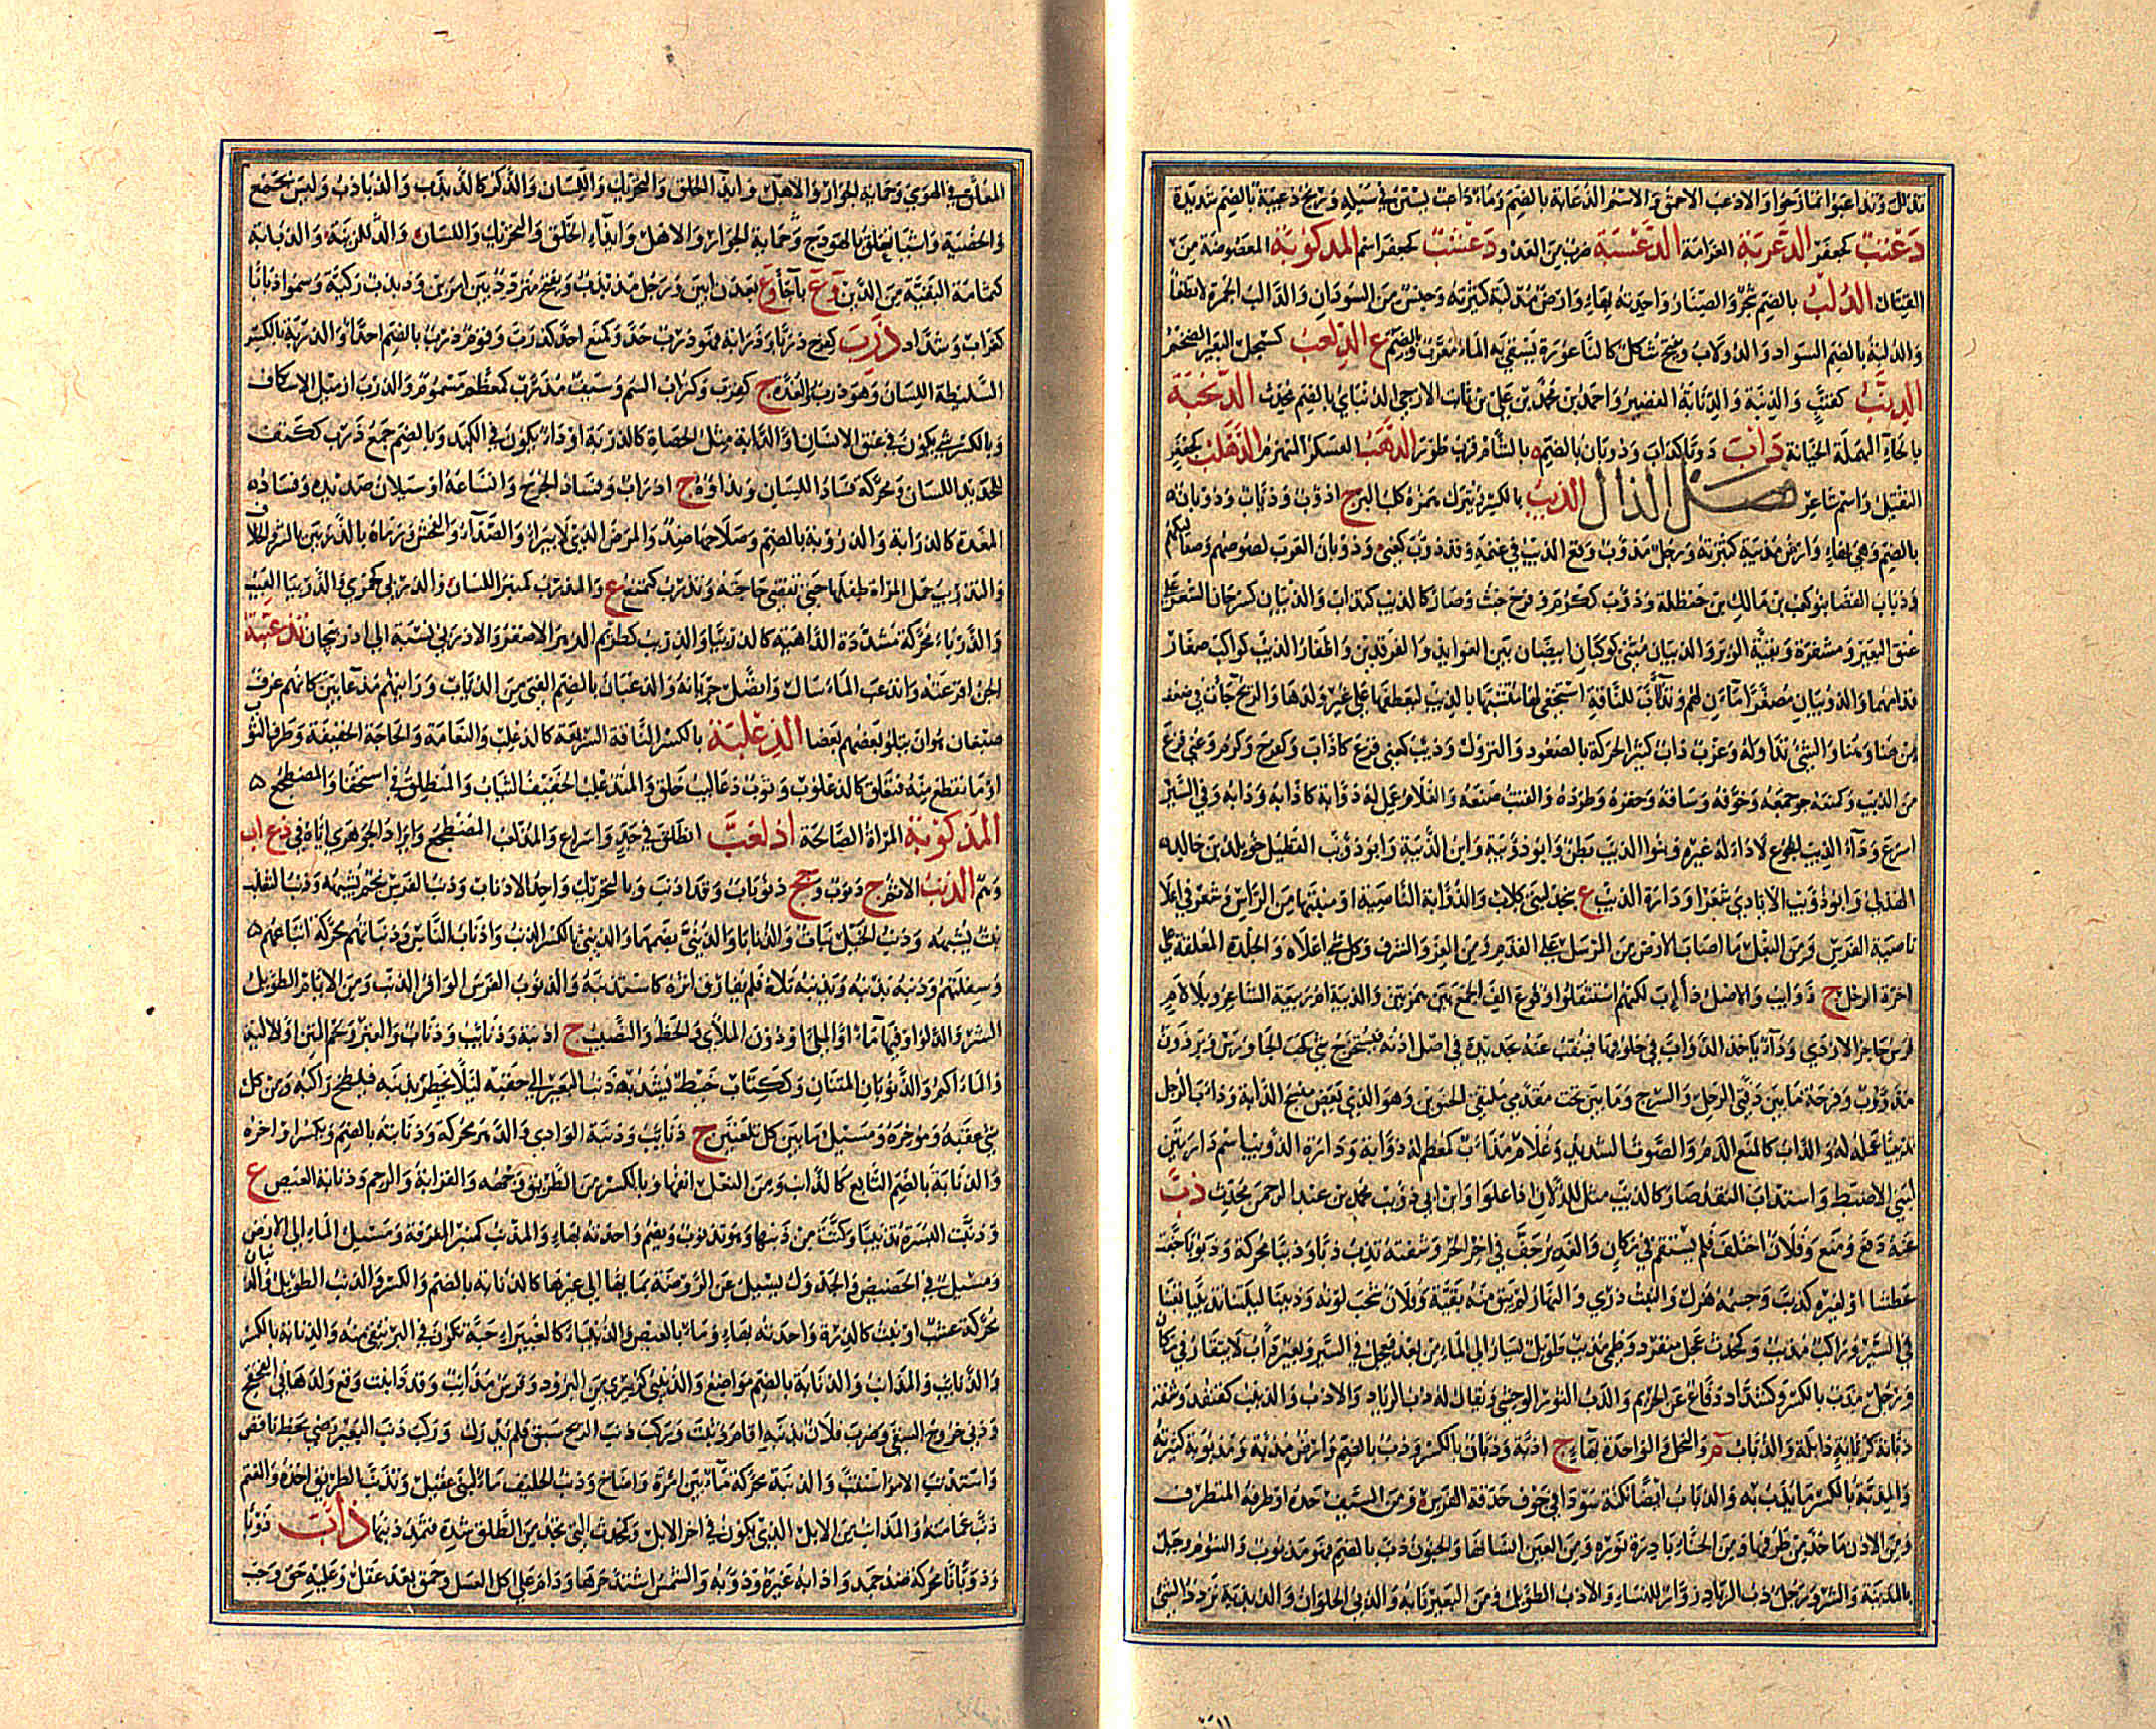 تذلل وتداعبوا تمازحوا والادعب الاحمق والاسم الدعابة بالضم وماء داعب يستن في سيله وريح دعبية بالضم شديدة
دعتب كجعفر الدعربة العرامة الدعسبة ضرب من العدو دعشب كجعفر اسم المدكوبة المعضوضة من
القتال الدلب بالضم شجر والصنار واحدته بهاء وارض مدلبة كثيرته وجنس من السودان والدالب الجمرة لا تطفأ
والدلبة بالضم السواد والدولاب ويفتح شكل كالناعورة يستقى به الماء معرب وبالضم ع الدلعب كسبحل البعير الضخم
الدنب كقنب والدنبة والدنابة القصير واحمد بن محمد بن علي بن ثابت الازجي الدنبائي بالضم محدث الدنحبة
بالحاء المهملة الخيانة داب دوبا كداب ودوبان بالضم ة بالشام قرب صور الدهب العسكر المنهزم الدهلب كجعفر
الثقيل واسم شاعر فصل الذال الذيب بالكسر ويترك همزه كلب البر ج اذوب وذياب وذوبان
بالضم وهي بهاء وارض مذيبة كثيرته ورجل مذؤب وقع الذيب في غنمه وقد ذؤب كعني وذوبان العرب لصوصهم وصعاليكهم
وذياب الغضا بنو كعب بن مالك بن حنظلة وذؤب ككرم وفرح خبث وصار كالذيب كتذاب والذئبان كسرحان الشعر على
عنق البعير ومشفره وبقية الوبر والذيبان مثنى كوكبان ابيضان بين العوايذ والفرقدين واظفار الذيب كواكب صغار
قدامهما والذويبان مصغرا ماءان لهم وتذأب للناقة استخفى لها متشبها بالذيب ليعطفها على غير ولدها والريح جاءت في ضعف
من هنا وهنا والشيء تداوله وغرب ذاب كثير الحركة بالصعود والنزول وذيب كعني فزع كاذاب وكفرح وكرم وعني فزع
من الذيب وكمنعه جمعه وخوفه وساقه وحقره وطرده والقتب صنعه والغلام عمل له ذوابة كاذابه وذابه وفي السير
اسرع وداء الذيب الجوع لا داء له غيره وبنوا الذيب بطن وابو ذويبة وابن الذيبة وابو ذؤيب القطيل خويلد بن خالد
الهذلي وابو ذويب الايادي شعرا ودارة الذيب ع بنجد لبني كلاب والذوابة الناصية او منبتها من الراس وشعر في اعلا
ناصية الفرس ومن النعل ما اصاب الارض من المرسل على القدم ومن العز والشرف وكل شيء اعلاه والجلدة المعلقة على
اخرة الرحل ج ذوايب والاصل ذأايب لكنهم استثقلوا وقوع الف الجمع بين همزتين والذيبة ام ربيعة الشاعر وبلا لام
فرس حاجز الازدي وداء ياخذ الدواب في حلوقها فينقب عنه بحديدة في اصل اذنه فيستخرج شيء كحب الجاورس وبرذون
مذووب وفرجة ما بين دفتي الرحل والسرج وما بين تحت مقدمي ملتقى الحنوين وهو الذي يعض منسج الدابة وذاب الرحل
تذييبا عمله له والذاب كالمنع الذم والصوت الشديد وغلام مذأب كمعظم له ذوابة ودارة الذؤيب اسم دارتين
لبني الاضبط واستذاب النقد صار كالذيب مثل للذلان اذا علوا وابن ابي ذويب محمد بن عبد الرحمن محدث ذب
عنه دفع ومنع وفلان اختلف فلم يستقم في مكان والغدير جف في اخر الحر وشفته تذب ذبا وذببا محركة وذبوبا جفت
عطشا او لغيره كذبب وجسمه هزل والنبت ذوي والنهار لم يبق منه بقية وفلان شحب لونه وذببنا ليلتنا تذبيبا اتعبنا
في السير وراكب مذبب كمحدث عجل منفرد وظمء مذبب طويل يسار الى الماء من بعد فيعجل في السير وبعير ذاب لا يتقار في مكان
ورجل مذب بالكسر وكشداد دفاع عن الحريم والذب الثور الوحشي ويقال له ذب الرياد والاذب والذنبب كقنفذ وشفة
ذبابة كريانة ذابلة والذباب م والنحل والواحدة بهاء ج اذبة وذبان بالكسر وذب بالضم وارض مذبة ومذبوبة كثيرته
والمذبة بالكسر ما يذب به والذباب ايضا نكتة سودا في جوف حدقة الفرس ومن السيف حده او طرفه المتطرف
ومن الاذن ما حد من طرفها ومن الحناء بادرة نوره ومن العين انسانها والجنون ذب بالضم فهو مذبوب والشوم وجبل
بالمدينة والشر ورجل ذب الرياد زوار للنساء والاذب الطويل ومن البعير نابه والذبي الجلواز والذبذبة تردد الشيء
المعلق في الهوي وحماية الجوار والاهل وايذا الخلق والتحريك واللسان والذكر كالذبذب والذباذب وليس بجمع
والخصية واشيا تعلق بالهودج وحماية الجوار والاهل وايذاء الخلق والتحريك واللسان والذبابة
كثمامة البقية من الدين وع باجأ وع بعدن ابين ورجل مذبذب ويفتح متردد بين امرين وذبذب ركية وسموا ذبابا
كغراب وشداد ذرب كفرح ذربا وذرابة فهو ذرب حد وكمنع احد كذرب وقوم ذرب بالضم احداء والذربة بالكسر
السليطة اللسان وهو ذرب والغدة ج كقرب وكتراب السم وسيف مذرب كمعظم مسموم والذرب ازميل الاسكاف
وبالكسر شيء يكون في عنق الانسان او الدابة مثل الحصاة كالذربة او داء يكون في الكبد وبالضم جمع ذرب ككتف
للحديد اللسان ومحركة فساد اللسان وبذاؤه ج اذراب وفساد الجرح واتساعه او سيلان صديده وفساد
المعدة كالذرابة والذروبة بالضم وصلاحها ضد والمرض الذي لا يبرا والصدا والفحش ورماه بالذربين بالشر والخلاف
والتذريب حمل المراة طفلها حتى تقضي حاجته وتذرب كتمنع ع والمذرب كمنبر اللسان والذربى كجمزى والذربيا العيب
والذربا محركة مشددة الداهية كالذربيا والذريب كطريم الزهر الاصفر والاذربي نسبة الى اذربيجان تذعبته
الجن افزعته وانذعب الماء سال واتصل جريانه والذعبان بالضم الفتي من الذياب ورايتهم مذعابين كانهم عرف
ضبعان وهو ان يتلو بعضهم بعضا الذعلبة بالكسر الناقة السريعة كالذعلب والنعامة والحاجة الخفيفة وطرف الثوب
او ما تقطع منه فتعلق كالذعلوب وثوب ذعاليب خلق والمتذعلب الخفيف الثياب والمنطلق في استخفا والمضطجع
المذكوبة المراة الصالحة اذلعب انطلق في جد واسراع والمذلعب المضطجع وايراد الجوهري اياه في ذعلب
وهم الذنب الاثم ج ذنوب وجج ذنوبات وقد اذنب وبالتحريك واحد الاذناب وذنب الفرس نجم يشبهه وذنب الثعلب
نبت يشبهه وذنب الخيل نبات والذنابا والذنبى بضمهما والذنبى بالكسر الذنب واذناب الناس وذنباتهم محركة اتباعهم
وسفلتهم وذنبه يذنبه ويذنبه تلاه فلم يفارق اثره كاستذنبه والذنوب الفرس الوافر الذنب ومن الايام الطويل
الشر والدلو او فيها ماء او الملاى او دون الملاى والحظ والنصيب ج اذنبة وذنايب وذناب والقبر ولحم المتن او الالية
والماءكم والذنوبان المتنان وككتاب خيط يشد به ذنب البعير الى حقبه ليلا يخطر بذنبه فيلطخ راكبه ومن كل
شيء عقبه ومؤخره ومسيل ما بين كل تلعتين ج ذنايب وذنبة الوادي والدهر محركة وذنابته بالضم ويكسر اواخره
والذنابة بالضم التابع كالذانب ومن النعل انفها وبالكسر من الطريق وجهه والقرابة والرحم وذنابة العيص ع
وذنبت البسرة تذنيبا وكتت من ذنبها وهو تذنوب ويضم واحدته بهاء والمذنب كمنبر المغرفة ومسيل الماء الى الارض
ومسيل في الحضيض والجدول يسيل عن الروضة بمايها الى غيرها كالذنابة بالضم والكسر والذنب الطويل والذنبان
محركة عشب او نبت كالذرة واحدته بهاء وماء بالعيص والذنيباء كالغبيراء حبة تكون في البر ينقى منه والذنابة بالكسر
والذنايب والمذانب والذنابة بالضم مواضع والذنيبي كزبيري من البرود وفرس مذانب وقد ذانبت وقع ولدها في القحقح
ودنى خروج السقي وضرب فلان بذنبه اقام وثبت وركب ذنب الريح سبق فلم يدرك وركب ذنب البعير رضي بحظ ناقص
واستذنب الامر استتب والذنبة محركة ما بين امرة واضاخ وذنب الحليف ماء لبني عقيل وتذنب الطريق اخذه والمعتم
ذنب عمامته والمذانب من الابل الذي يكون في اخر الابل وكمحدث التي تجد من الطلق شدة فتمدد ذنبها ذاب ذوبا
وذوبانا محركة ضد جمد واذابه غيره وذوبه والشمس اشتد حرها ودام على اكل العسل وحمق بعد عقل وعليه حق وجب